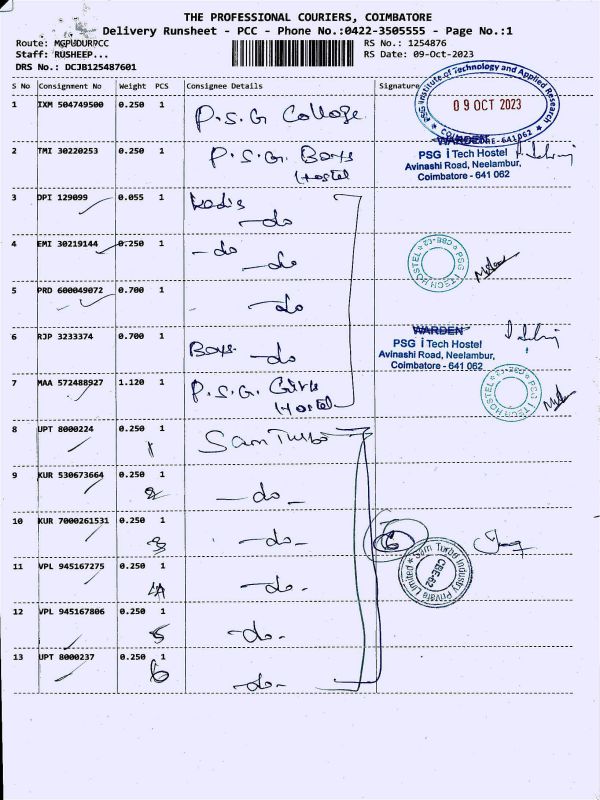 THE PROFESSIONAL COURIERS, COIMBATORE
Delivery Runsheet - PCC - Phone No.:0422-3505555 - Page No.:1
Route: MGPUDURPCC
RS No.: 1254876
Staff: RUSHEEP...
RS Date: 09-Oct-2023
DRS No.: DCJB125487601
S No Consignment No Weight PCS Consignee Details Signature
PSG Institute of Technology and Applied Research
09 OCT 2023
1 IXM 504749500 0.250 1 P.S.G College
WARDEN
2 TMI 30220253 0.250 1 P.S.G. Boys
Hostel
PSG i Tech Hostel
Avinashi Road, Neelambur,
Coimbatore - 641 062
3 DPI 129099 0.055 1
-do
4 EMI 30219144 0.250 1 -do
-do
PSG i TECH HOSTEL CBE-62
5 PRD 600049072 0.700 1 -do
6 RJP 3233374 0.700 1 Boys. -do
WARDEN
PSG i Tech Hostel
Avinashi Road, Neelambur,
Coimbatore - 641 062
7 MAA 572488927 1.120 1 P.S.G. Girls
Hostel
PSG i TECH HOSTEL CBE-62
8 UPT 8000224 0.250 1 Sam Turbo
1
9 KUR 530673664 0.250 1 -do-
2
10 KUR 7000261531 0.250 1 -do-
3
6
11 VPL 945167275 0.250 1 -do-
4
Sam Turbo Industry Private Limited
CBE-62
12 VPL 945167806 0.250 1 -do-
5
13 UPT 8000237 0.250 1 -do-
6